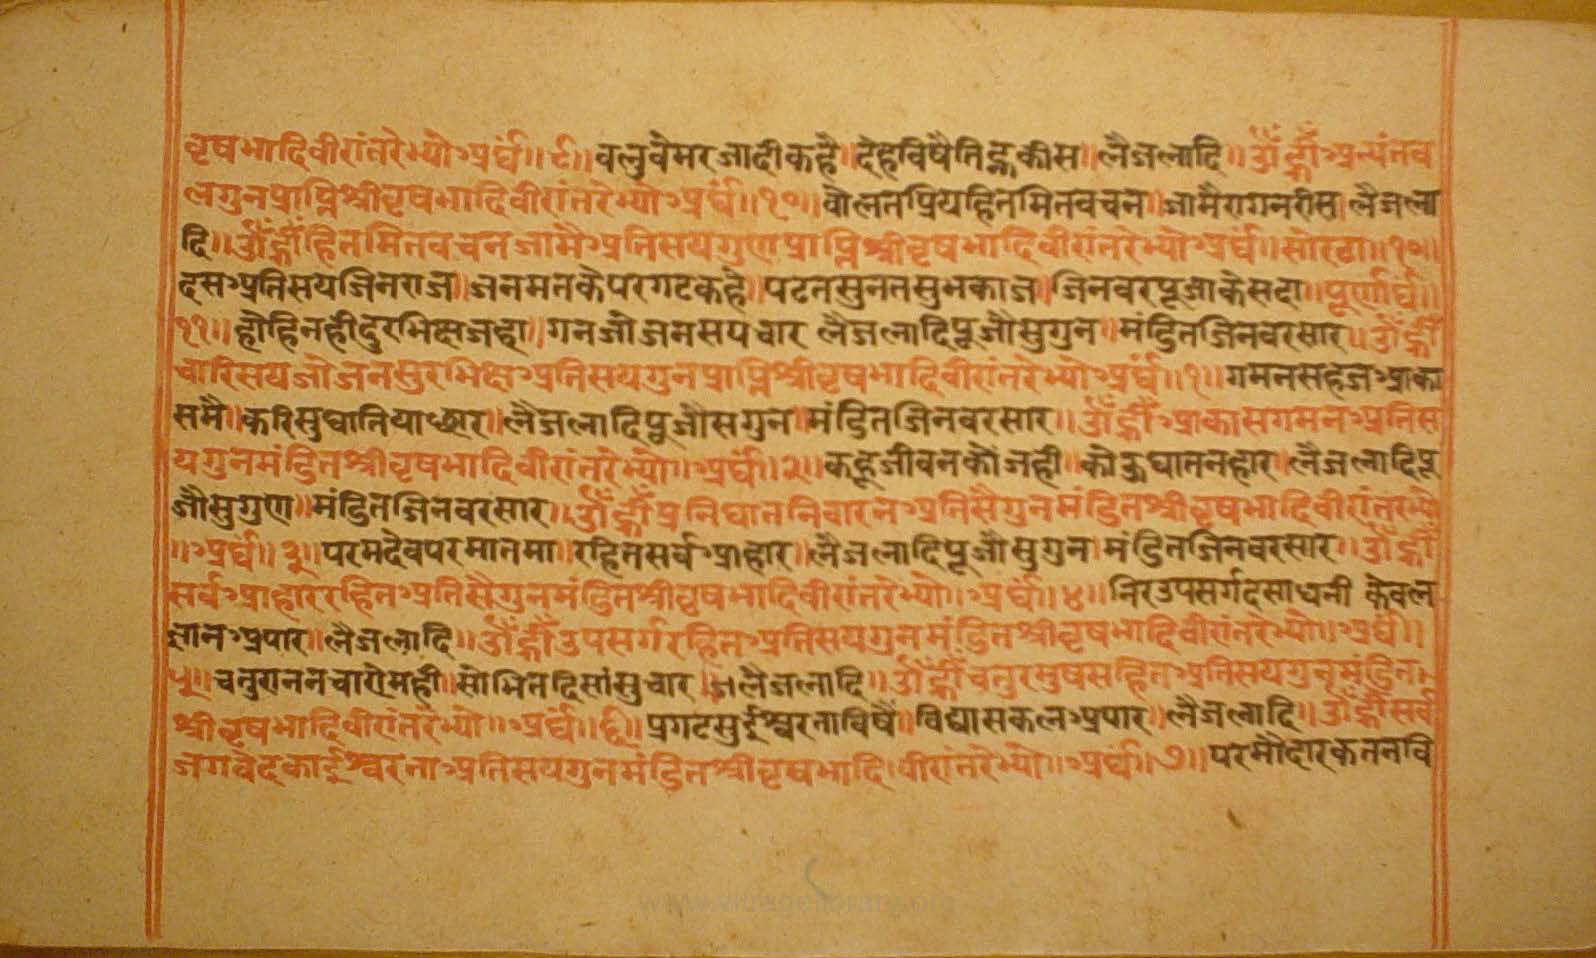 वृषभादिवीरांतरेभ्यो अर्घं॥९॥ वलुवेमरजादीकहै॥ देहविषैतिह्नकीस॥ लैजलादि॥ ॐह्रीँअत्यंतव
लगुनप्राप्तिश्रीवृषभादिवीरांतरेभ्यो अर्घं॥१०॥ वोलनप्रियहितमितवचन॥ जामैरागनरीस॥ लैजला
दि॥ ॐह्रीँहितमितवचनजामैअतिसयगुणप्राप्तिश्रीवृषभादिवीरांतरेभ्यो अर्घं॥ सोरठा॥१०॥
दसअतिसयजिनराज॥ जनमतकेपरगटकहे॥ पढतसुनतसुभकाज॥ जिनवरपूजाकेसदा॥ पूर्णार्घं॥
११॥ होहिनहीदुरभिक्षजहा॥ गनजोजनसपचार लैजलादिपूजौसुगुन॥ मंडितजिनवरसार॥ ॐह्रीँ
चारिसयजोजनसुरभिक्षअतिसयगुनप्राप्तिश्रीवृषभादिवीरांतरेभ्यो अर्घं॥१॥ गमनसहजआका
समै॥ करिसुघातिया लैजलादिपूजौसगुन॥ मंडितजिनवरसार॥ ॐह्रीँआकासगमनअतिस
यगुनमंडितश्रीवृषभादिवीरांतरेभ्यो॥ अर्घं॥२॥ कहूजीवनकौजही॥ कोऊघातनहार॥ लैजलादिपू
जौसुगुण॥ मंडितजिनवरसार॥ ॐह्रीँप्रनिघातनिवारनअतिसैगुनमंडितश्रीवृषभादिवीरांतरेभ्यो
॥ अर्घं॥३॥ परमदेवपरमातमा॥ रहितसर्वआहार॥ लैजलादिपूजौसुगुन॥ मंडितजिनवरसार॥ ॐह्रीँ
सर्वआहाररहितअतिसैगुनमंडितश्रीवृषभादिवीरांतरेभ्यो॥ अर्घं॥४॥ निरउपसर्गदसाधनी केवल
ज्ञानअपार॥ लैजलादि॥ ॐह्रीँउपसर्गरहितअतिसयगुनमंडितश्रीवृषभादिवीरांतरेभ्यो॥ अर्घं॥
५॥ चतुराननचारोमही॥ सोभितदिसांसुचार॥ लैजलादि॥ ॐह्रीँचतुरमुषसहितअतिसयगुनमंडित।
श्रीवृषभादिवीरांतरेभ्यो॥ अर्घं॥६॥ प्रगटसुईश्वरताविषै॥ विद्यासकलअपार॥ लैजलादि॥ ॐह्रीँसर्व
जगवेदकाईश्वरताअतिसयगुनमंडितश्रीवृषभादिवीरांतरेभ्यो॥ अर्घं॥७॥ परमौदारकतनवि